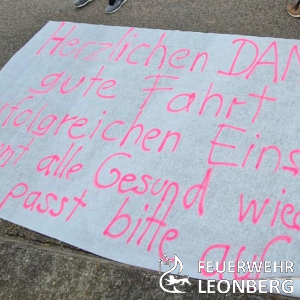 Herzlichen DAN
gute Fahrt
rfolgreichen Eins
mt alle Gesund wied
passt bitte auf
FEUERWEHR
LEONBERG